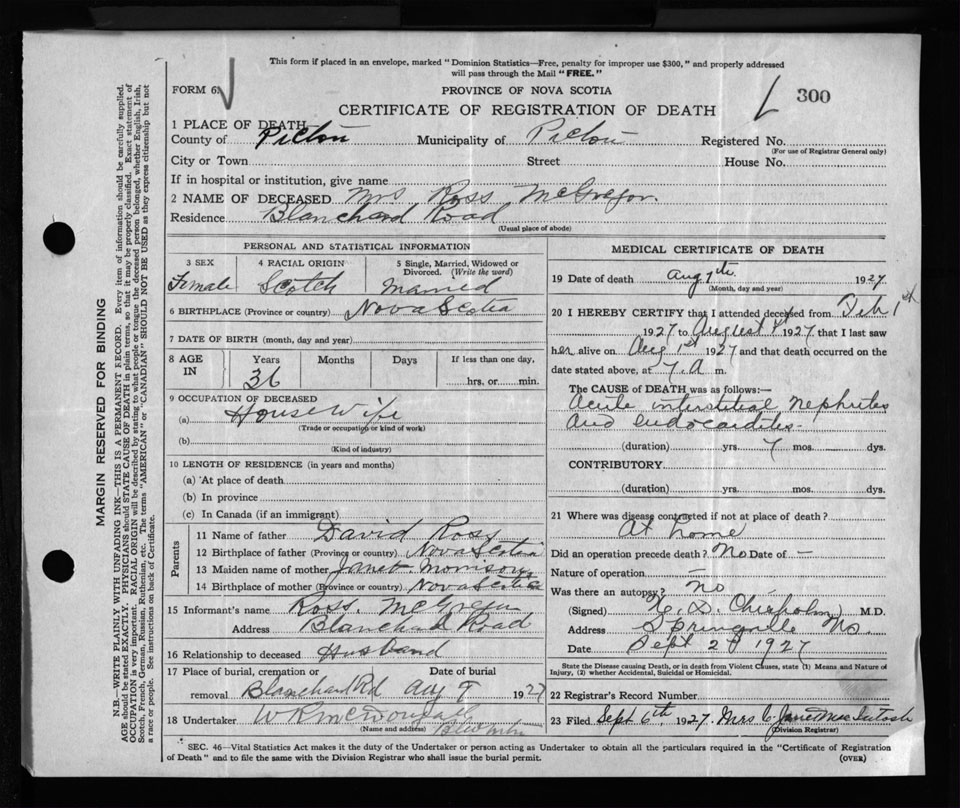 This form if placed in an envelope, marked "Dominion Statistics—Free, penalty for improper use $300," and properly addressed
will pass through the Mail "FREE."
FORM 6. PROVINCE OF NOVA SCOTIA
CERTIFICATE OF REGISTRATION OF DEATH 300
1 PLACE OF DEATH
County of Pictou Municipality of Pictou Registered No.
(For use of Registrar General only)
City or Town Street House No.
If in hospital or institution, give name
2 NAME OF DECEASED Mrs Ross McGregor.
Residence Blanchard Road
(Usual place of abode)
PERSONAL AND STATISTICAL INFORMATION
3 SEX 4 RACIAL ORIGIN 5 Single, Married, Widowed or
Divorced. (Write the word)
Female Scotch Married
6 BIRTHPLACE (Province or country) Nova Scotia
7 DATE OF BIRTH (month, day and year)
8 AGE IN Years Months Days If less than one day,
36 hrs. or min.
9 OCCUPATION OF DECEASED
(a) Housewife
(Trade or occupation or kind of work)
(b)
(Kind of industry)
10 LENGTH OF RESIDENCE (in years and months)
(a) At place of death
(b) In province
(c) In Canada (if an immigrant)
Parents
11 Name of father David Ross
12 Birthplace of father (Province or country) Nova Scotia
13 Maiden name of mother Janet Morrison
14 Birthplace of mother (Province or country) Nova Scotia
15 Informant's name Ross. McGregor
Address Blanchard Road
16 Relationship to deceased Husband
17 Place of burial, cremation or Date of burial
removal Blanchard Rd Aug 9 1927
18 Undertaker W R McDougall
(Name and address)
MEDICAL CERTIFICATE OF DEATH
19 Date of death Aug 7th 1927
(Month, day and year)
20 I HEREBY CERTIFY that I attended deceased from Feb 1st
1927 to August 1927 that I last saw
her alive on Aug 1st 1927 and that death occurred on the
date stated above, at 7. A m.
The CAUSE of DEATH was as follows:—
Acute interstitial nephrites
and endocardites-
(duration) yrs. 7 mos. dys.
CONTRIBUTORY
(duration) yrs. mos. dys.
21 Where was disease contracted if not at place of death?
At home
Did an operation precede death? No Date of –
Nature of operation –
Was there an autopsy? no
(Signed) Chisholm M.D.
Address Springville Ns.
Date Sept 2d 1927
State the Disease causing Death, or in death from Violent Causes, state (1) Means and Nature of
Injury, (2) whether Accidental, Suicidal or Homicidal.
22 Registrar's Record Number
23 Filed Sept 6th 1927. Mrs C Jane MacIntosh
(Division Registrar)
SEC. 46—Vital Statistics Act makes it the duty of the Undertaker or person acting as Undertaker to obtain all the particulars required in the "Certificate of Registration
of Death" and to file the same with the Division Registrar who shall issue the burial permit. (OVER)
MARGIN RESERVED FOR BINDING
N.B.—WRITE PLAINLY WITH UNFADING INK—THIS IS A PERMANENT RECORD. Every item of information should be carefully supplied.
AGE should be stated EXACTLY. PHYSICIANS should STATE CAUSE OF DEATH in plain terms, so that it may be properly classified. Exact statement of
OCCUPATION is very important. RACIAL ORIGIN will be described by stating to what people or tongue the deceased person belonged, whether English, Irish,
Scotch, French, German, Russian, Ruthenian, etc. The terms "AMERICAN" or "CANADIAN" SHOULD NOT BE USED as they express citizenship but not
a race or people. See instructions on back of Certificate.